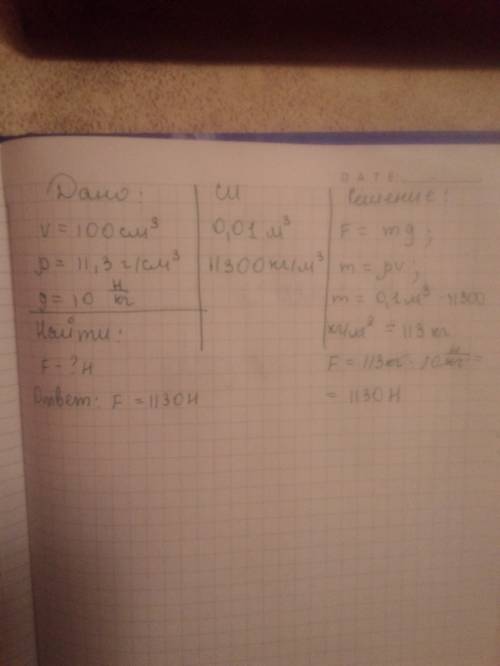 DATE:
Дано:
V = 100 см³
ρ = 11,3 г/см³
g = 10 Н/кг
Найти:
F - ? Н
Ответ: F = 1130 Н
СИ
0,01 м³
11300 кг/м³
Решение:
F = mg;
m = ρv;
m = 0,1 м³ · 11300
кг/м³ = 113 кг
F = 113 кг · 10 Н/кг =
= 1130 Н